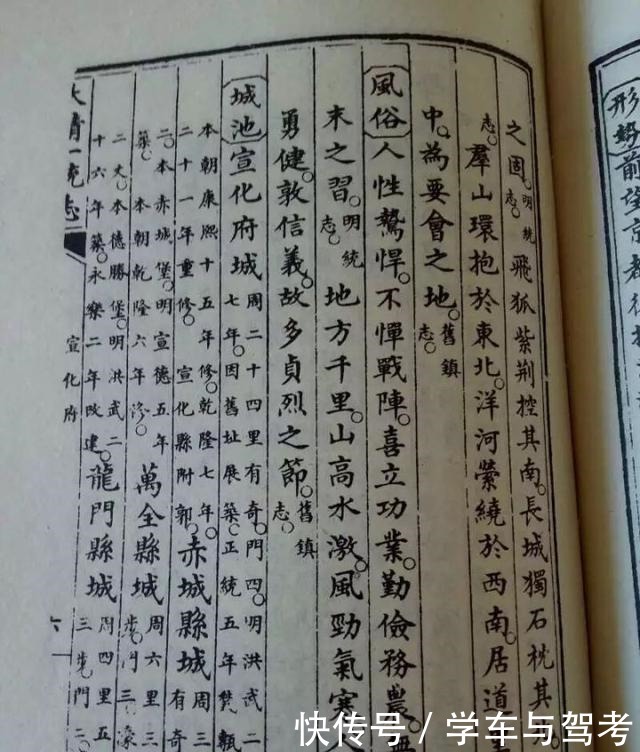 形勢前望京都後
之固明統志飛狐紫荆控其南長城獨石枕其
羣山環抱於東北洋河縈繞於西南居道
中為要會之地舊鎮志
風俗人性驁悍不憚戰陣喜立功業勤儉務農無
末之習明統志地方千里山高水激風勁氣寒
勇健敦信義故多貞烈之節舊鎮志
城池宣化府城周二十四里有奇門四明洪武二
七年因舊址展築正統五年甃
本朝康熙十五年修乾隆七年
二十一年重修宣化縣附郭赤城縣城周三
有奇
二本赤城堡明宣德五年
築本朝乾隆六年修萬全縣城周六里三
步門三濠
二丈本德勝堡明洪武二
十六年築永樂二年改建龍門縣城周四里五
三步門二
大清一統志
宣化府
六
快传号/学车与驾考